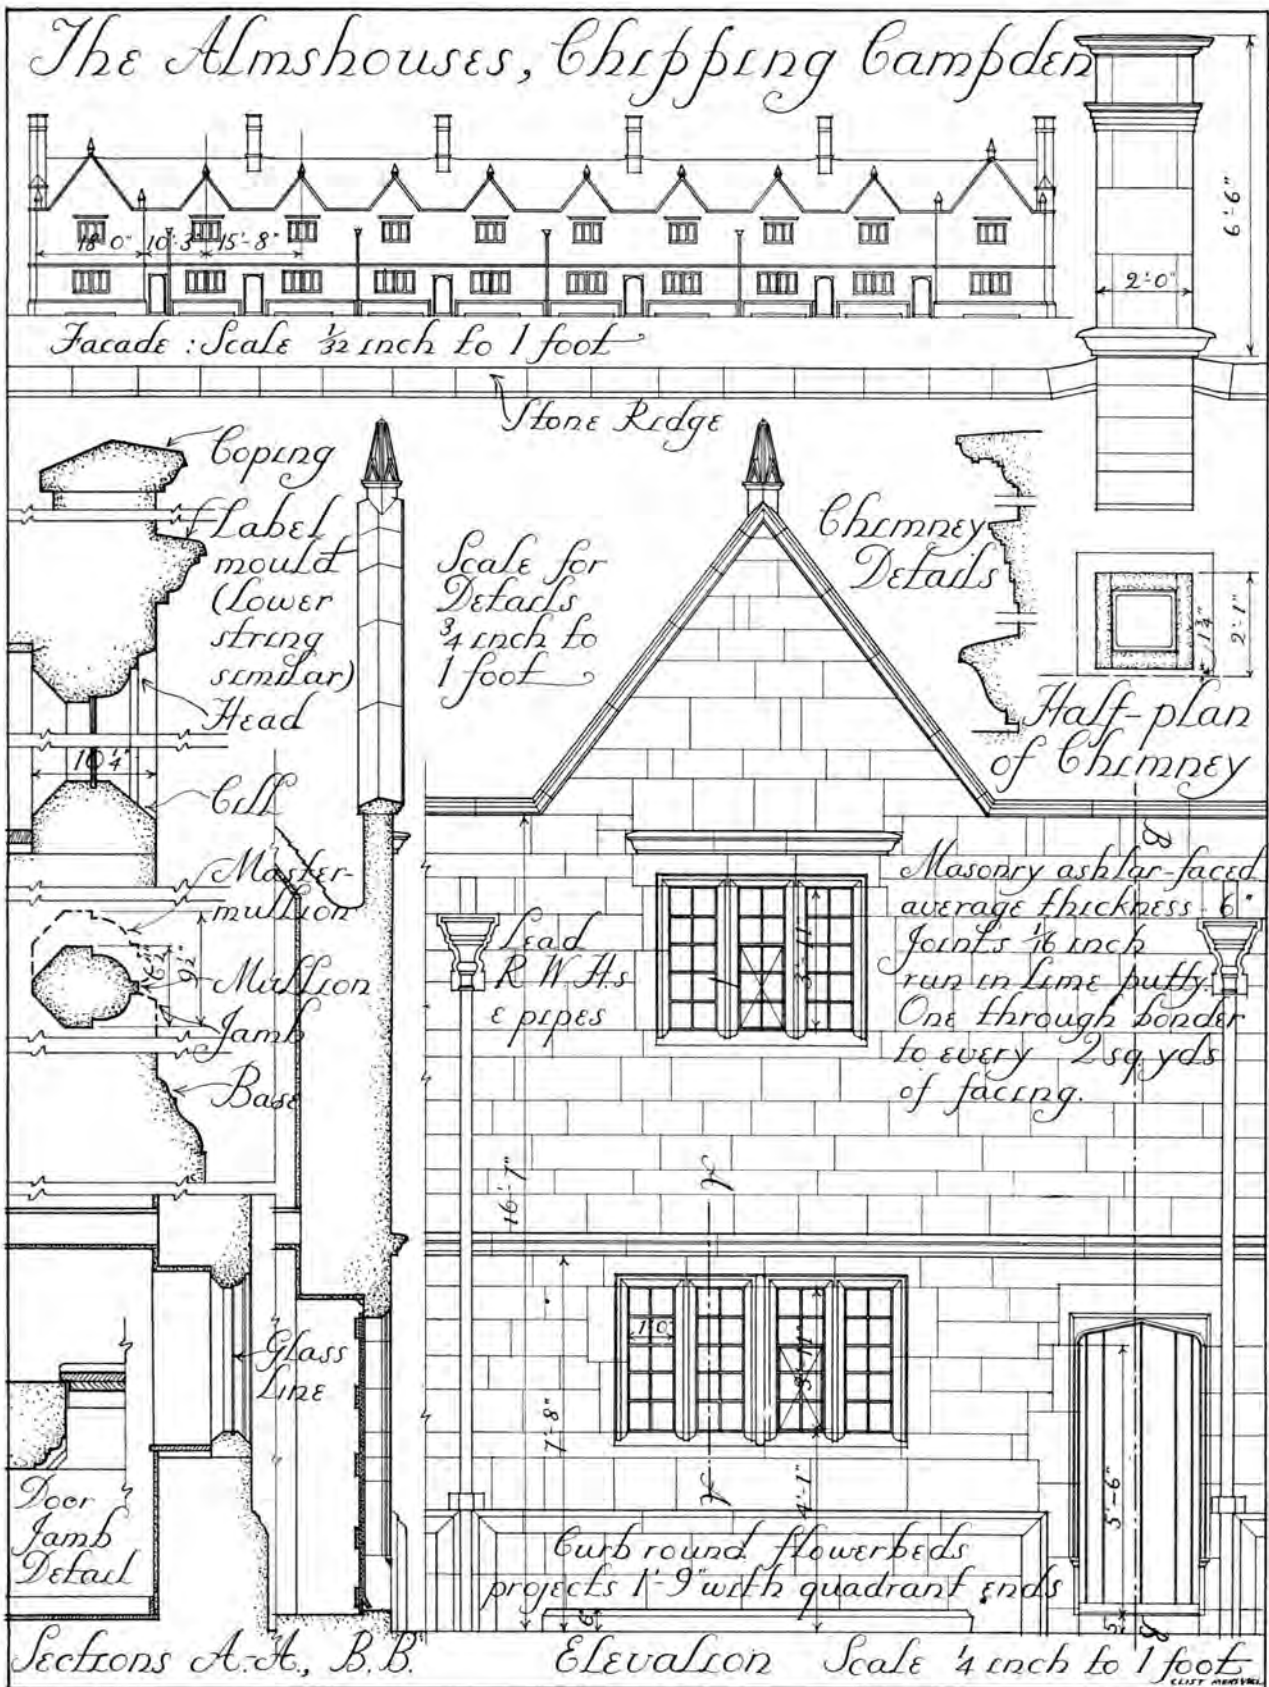 The Almshouses, Chipping Campden
18'-0" 10'-3" 15'-8"
6'-6"
2'-0"
Facade : Scale 1/32 inch to 1 foot
Stone Ridge
Coping
Label
mould
(Lower
string
similar)
Head
10 1/4"
Cill
Master-
mullion
6 1/2"
9 1/2"
Mullion
Jamb
Base
Scale for
Details
3/4 inch to
1 foot
Chimney
Details
1 3/4"
2'-1"
Half-plan
of Chimney
B
Masonry ashlar-faced
average thickness - 6"
Joints 1/16 inch
run in lime putty.
One through bonder
to every 2 sq yds
of facing.
Lead
R.W.H.s
& pipes
3'-11"
16'-7"
A
7'-8"
1'0"
3'-11"
4'-1"
A
5'-6"
Glass
Line
Door
Jamb
Detail
Curb round flowerbeds
projects 1'-9" with quadrant ends
6"
5"
B
Sections A-A, B.B.
Elevation Scale 1/4 inch to 1 foot